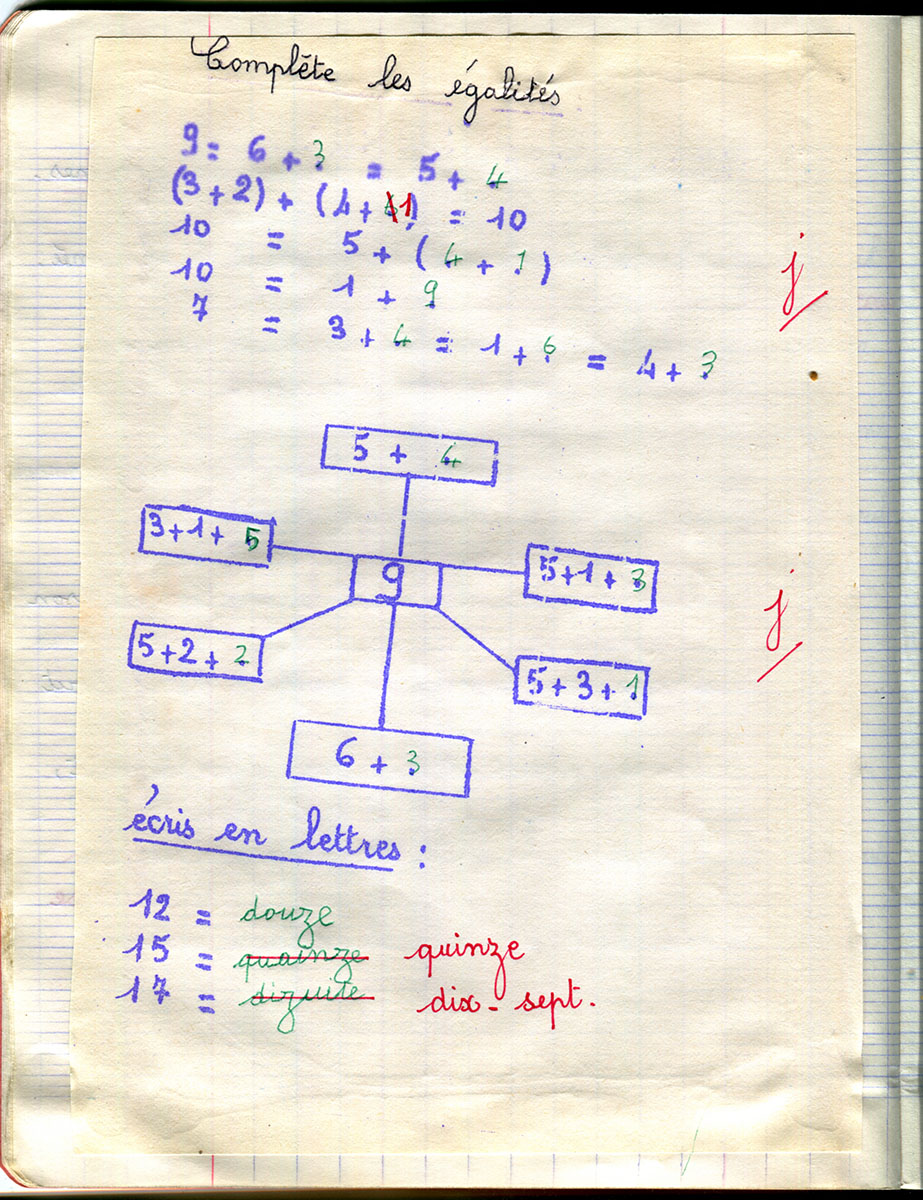 Complète les égalités
9 = 6 + 3 = 5 + 4
(3 + 2) + (4 + 1) = 10
10 = 5 + (4 + 1)
10 = 1 + 9
7 = 3 + 4 = 1 + 6 = 4 + 3
j
5 + 4
3+1+ 5
9
5+1+3
j
5+2+2
5+3+1
6 + 3
écris en lettres :
12 = douze
15 = quainze quinze
17 = dizuite dix-sept.